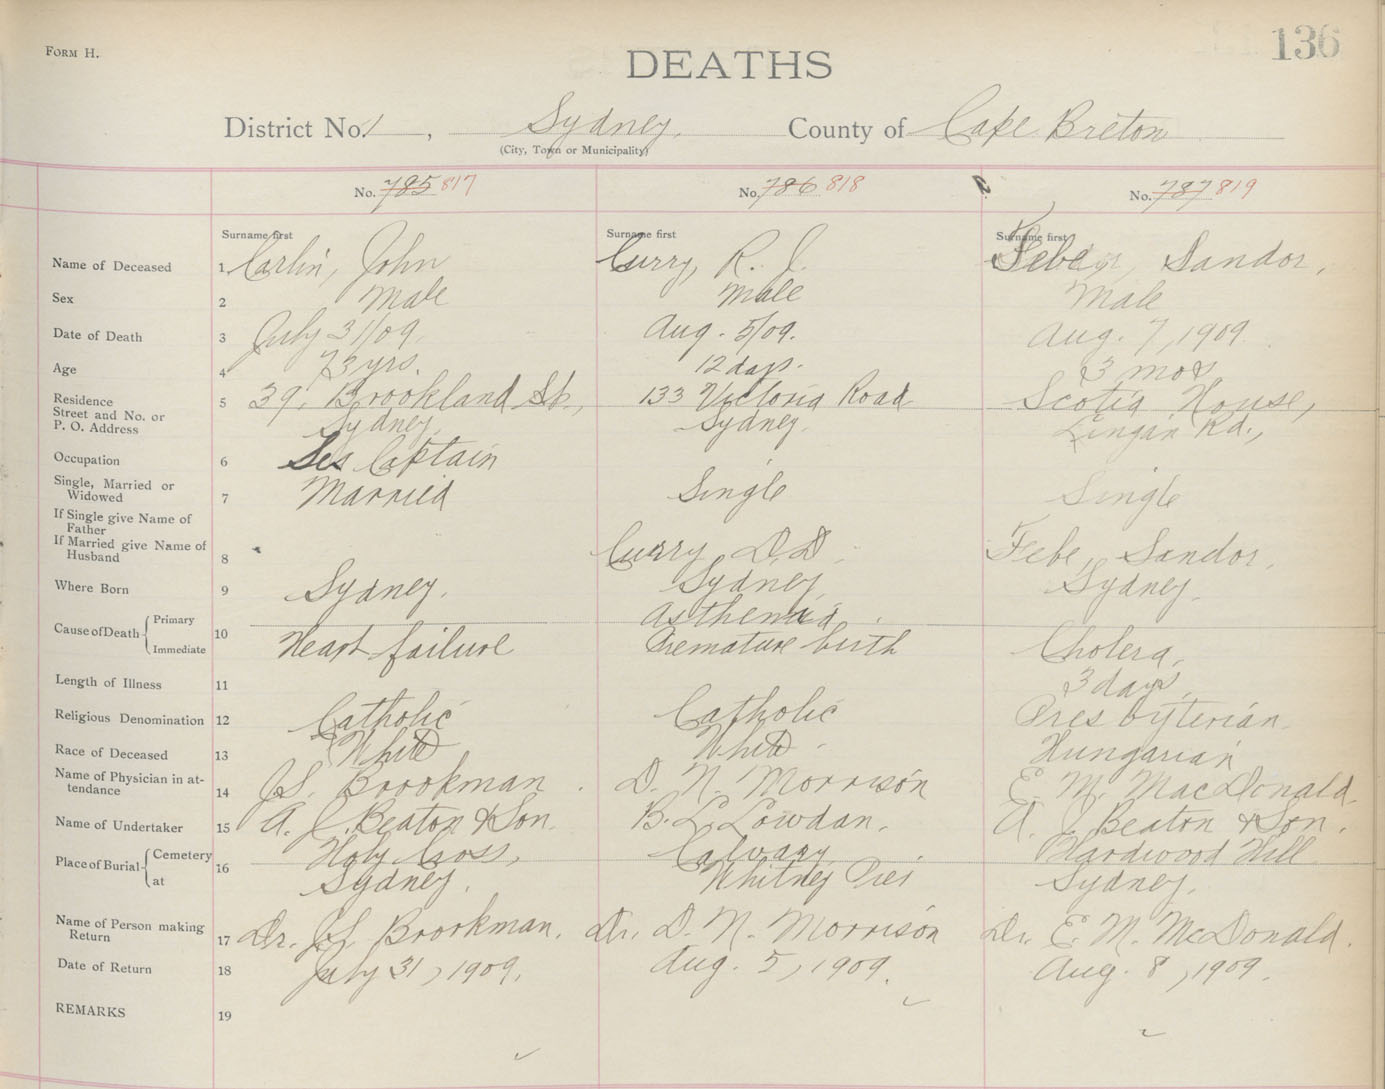 136
FORM H.
DEATHS
District No. 1, Sydney, County of Cape Breton
(City, Town or Municipality)
No. 785 817 No. 786 818 No. 787 819
Surname first Surname first Surname first
Name of Deceased 1 Carlin, John Curry, R. J. Febe, Sandor,
Sex 2 Male Male Male
Date of Death 3 July 31/09. Aug. 5/09. Aug. 7, 1909.
Age 4 73 yrs. 12 days. 3 mos
Residence 5 39, Brookland St., 133 Victoria Road Scotia House,
Street and No. or
P. O. Address Sydney. Sydney. Lingan Rd.,
Occupation 6 Sea Captain
Single, Married or
Widowed 7 Married Single Single
If Single give Name of
Father
If Married give Name of
Husband 8 Curry D. D. Febe, Sandor,
Where Born 9 Sydney. Sydney Sydney.
Cause of Death Primary 10 Asthenia.
Immediate Heart failure Premature birth Cholera,
Length of Illness 11 3 days,
Religious Denomination 12 Catholic Catholic Presbyterian
Race of Deceased 13 White White Hungarian
Name of Physician in at-
tendance 14 J.S. Brookman. D. N. Morrison E. M. MacDonald.
Name of Undertaker 15 A. J. Beaton & Son. B. L. Lowdan. A. J. Beaton & Son.
Place of Burial Cemetery 16 Holy Cross, Calvary, Hardwood Hill
at Sydney. Whitney Pier Sydney.
Name of Person making
Return 17 Dr. J.S. Brookman. Dr. D. N. Morrison Dr. E. M. McDonald.
Date of Return 18 July 31, 1909. Aug. 5, 1909. Aug. 8, 1909.
REMARKS 19